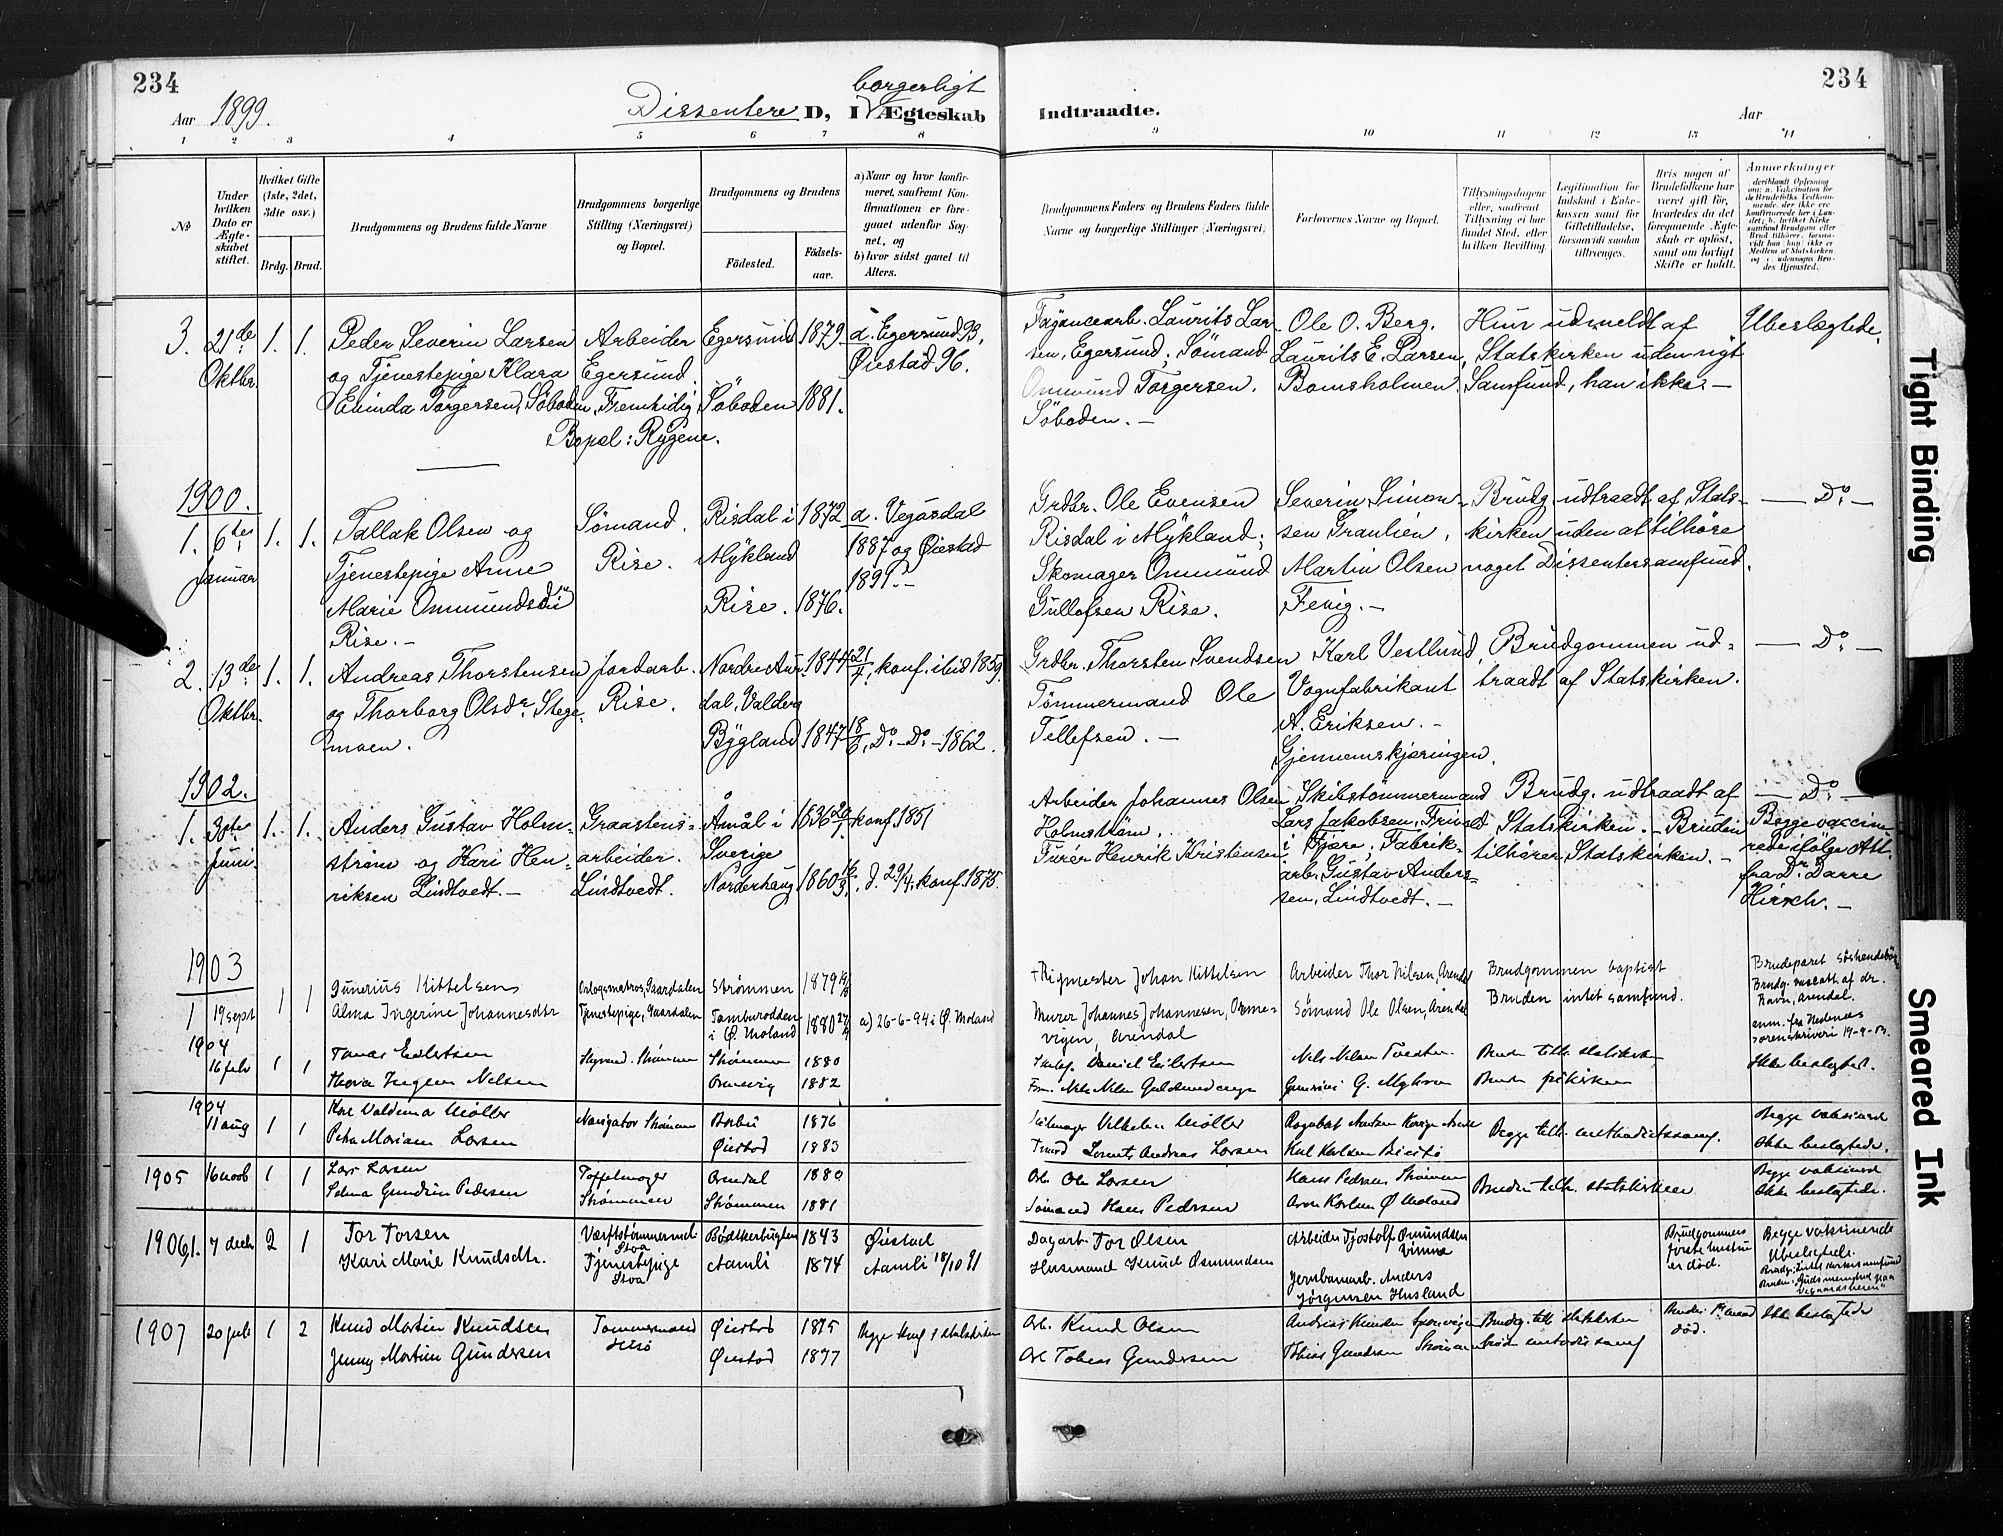 234
Aar 1899.
Dissentere D, I borgerligt Ægteskab
Indtraadte.
Aar
234
1 2 3 4 5 6 7 8 9 10 11 12 13 14
№
Under hvilken Dato er Ægteskabet stiftet.
Hvilket Gifte (1ste, 2det, 3die osv.)
Brdg. Brud.
Brudgommens og Brudens fulde Navne
Brudgommens borgerlige Stilling (Næringsvei) og Bopæl.
Brudgommens og Brudens
Fødested.
Fødselsaar.
a) Naar og hvor konfirmeret, saafremt Konfirmationen er foregaaet udenfor Sognet, og
b) hvor sidst gaaet til Alters.
Brudgommens Faders og Brudens Faders fulde Navne og borgerlige Stillinger (Næringsvei).
Forlovernes Navne og Bopæl.
Tillysningsdagene eller, saafremt Tillysning ei har fundet Sted, efter hvilken Bevilling.
Legitimation for Indskud i Enkekassen samt for Giftetilladelse, forsaavidt saadan tiltrænges.
Hvis nogen af Brudefolkene har været gift før, hvorledes da det foregaaende Ægteskab er opløst, samt om lovligt Skifte er holdt.
Anmerkninger
3. 21de Oktbr. 1. 1.
Peder Severin Larsen
og Tjenestepige Klara
Elvinda Torgersen, Søboden
Arbeider
Egersund.
Fremtidig
Bopæl: Rygene.
Egersund 1879
Søboden 1881.
a. Egersund 93,
Øiestad 96.
Fayancearb. Laurits Larsen, Egersund; Sømand
Ommund Torgersen.
Søboden. —
Ole O. Berg.
Laurits E. Larsen,
Bomsholmen.
Hun udmeldt af
Statskirken uden nyt
Samfund, han ikke. —
Ubeslægtede.
1900.
1. 6te Januar 1. 1.
Tallak Olsen og
Tjenestepige Anne
Marie Ommundsd.
Rise. —
Sømand.
Rise.
Risdal i 1872
Mykland
Rise. 1876.
a. Vegusdal
1887 og Øiestad
1891. —
Grdbr. Ole Evensen
Risdal i Mykland;
Skomager Ommund
Gullofsen Rise.
Severin Simonsen Graulien,
Martin Olsen
Fevig. —
Brudg. udtraadt af Statskirken uden at tilhøre
noget Dissentersamfund.
— Do. —
2. 13de Oktbr. 1. 1.
Andreas Thorstensen
og Thorborg Olsdr. Stegemoen.
Jordarb.
Rise.
Nordre Aurdal, Valders 1844
Bygland 1847
21/7, konf. ibid 1859.
18/6, Do. — Do. — 1862.
Grdbr. Thorsten Svendsen
Tømmermand Ole
Tellefsen. —
Karl Vestlund,
Vognfabrikant
A. Eriksen. —
Gjennemskjæringen.
Brudgommen udtraadt af Statskirken.
— Do. —
1902.
1. 30te Juni. 1. 1.
Anders Gustav Holmstrøm og Kari Henriksen Lindtvedt. —
Graastensarbeider.
Lindtvedt.
Åmål i
Sverige
Norderhaug
1836 20/1 konf. 1851
1860 16/3, d. 29/4, konf. 1875.
Arbeider Johannes Olsen
Holmstrøm.
Furér Henrik Kristensen
Skibstømmermand
Lars Jakobsen, Frivold
i Fjære, Fabrikarb. Gustav Anderssen, Lindtvedt. —
Brudg. udtraadt af
Statskirken. — Bruden
tilhører Statskirken. —
— Do —
Begge vaccinerede ifølge Att.
fra Dr. Darre
Hirsch. —
1903
1 19 sept 1 1
Junerius Kittelsen
Alma Ingerine Johannesdtr
Orlogsmatros, Gaardalen
Tjenestepige, Gaardalen
Strømmen 1879
Tamburodden
i Ø. Moland 1880
a) 26-6-94 i Ø. Moland
+Rigmester Johan Kittelsen
Murer Johannes Johannesen, Ormevigen, Arendal
Arbeider Thor Nilsen, Arendal
Sømand Ole Olsen, Arendal
Brudgommen baptist
Bruden intet samfund.
1904
16 febr 1 1
Tomas Eilertsen
Thora Nelsen
Strømmen
1880
1882
Daniel Eilertsen
Ikke beslegted.
1904
11 aug 1 1
Karl Valdemar Møller
Petra Mariane Larsen
Navigatør Strømmen
Barbu 1876
Øiestad 1883
Vilhelm Møller
Andreas Larsen
Begge tilh. metodistsamf.
Begge vaksinerede
Ikke beslegtede.
1905 16 novb 1 1
Lars Larsen
Selma Gundrin Pedersen
Tøffelmager
Strømmen
Arendal 1880
Strømmen 1881
Arb. Ole Larsen
Sømand Hans Pedersen
Hans Pedersen Strømmen
Bruden tilh. statskirken
Begge vaksinerede
Ikke beslegtede.
1906 1. 7 decb 2 1
Tor Torsen
Kari Marie Knudsdtr.
Værftstømmermd.
Stoa
Tjenestepige
Stoa
Bødtkerbugten 1843
Aamli 1874
Øiestad
Aamli 18/10 91
Dagarb. Tor Olsen
Husmand Knud Osmundsen
Arbeider Tjostolf Omundsen
Vinma
Jernbanearb. Anders
Jørgensen Husland
Brudgommens
første hustru
er død.
Begge vaksinerede
Ubeslegtede.
1907 20 july 1 2
Knud Martin Knudsen
Jenny Martine Gundersen
Tømmermand
Øiestad 1875
Øiestad 1877
Begge konf. i statskirken
Arb. Knud Olsen
Arb Tobias Gundersen
Tobias Gundersen Strømmen
Brudg. tilh. statskirken
Brud metodistsamf
død.
Ikke beslegtede
Tight Binding
Smeared Ink